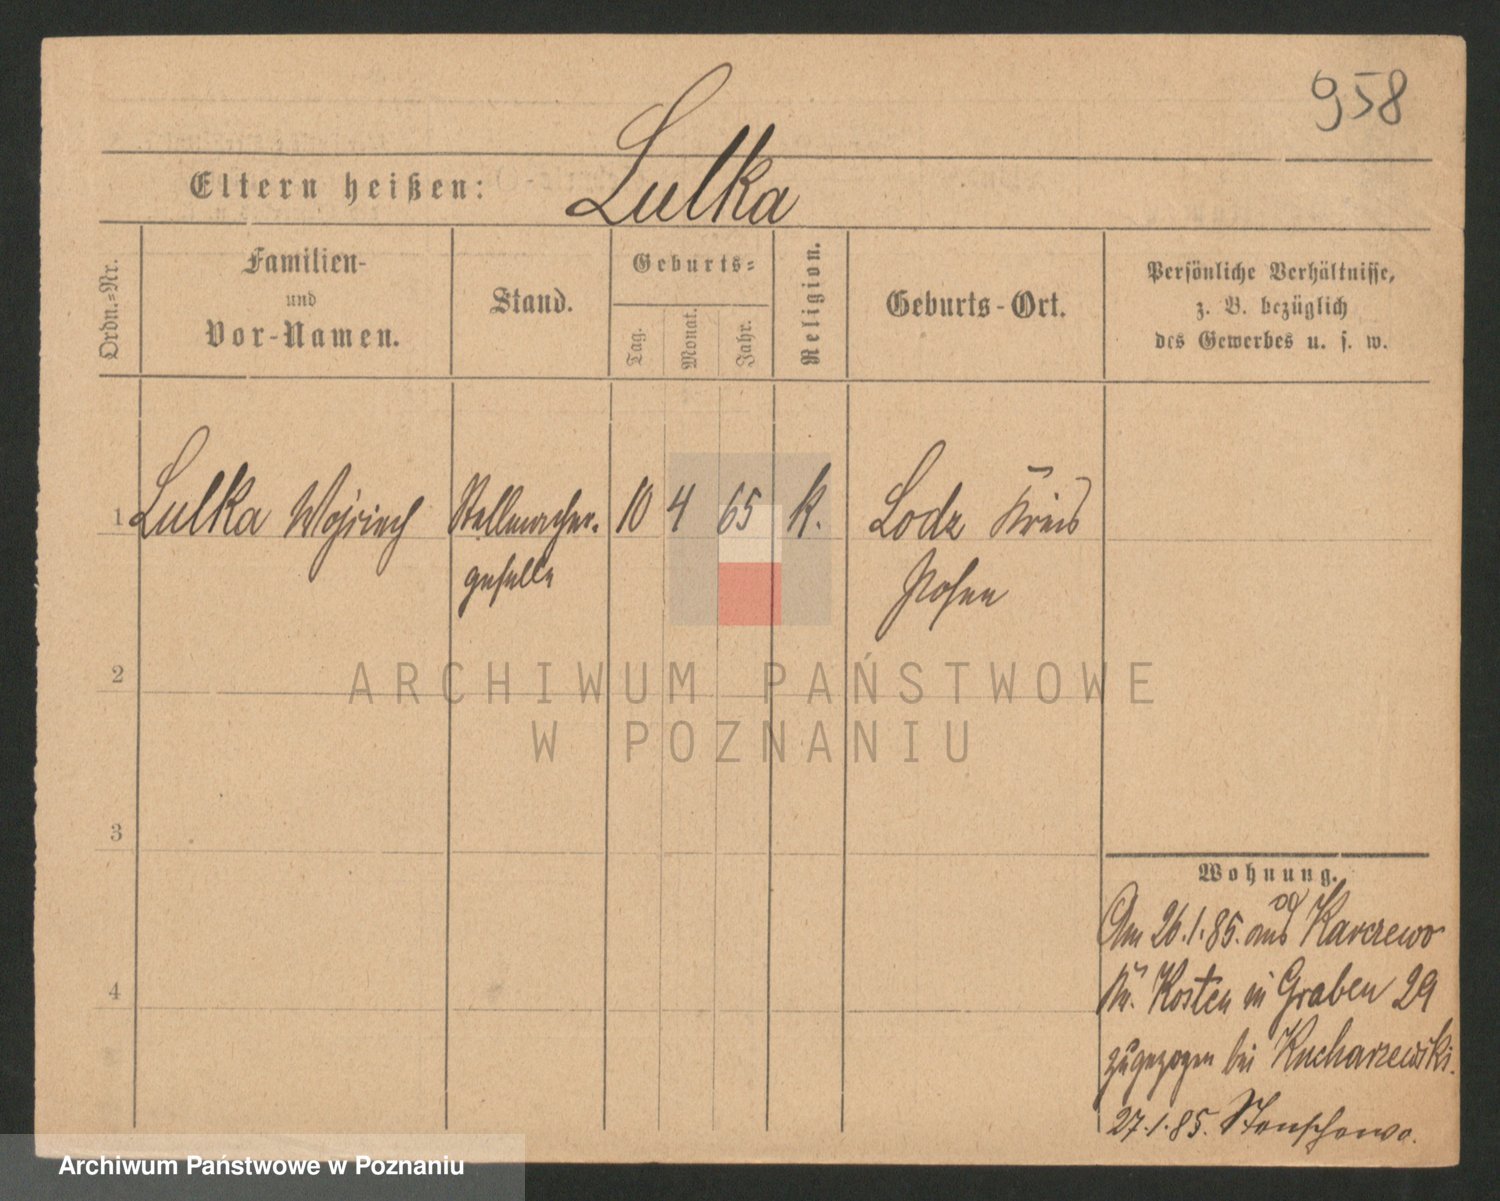 958
Eltern heißen: Lulka
Ordn.-Nr.
Familien-
und
Vor-Namen.
Stand.
Geburts-
Tag.
Monat.
Jahr.
Religion.
Geburts-Ort.
Persönliche Verhältnisse,
z. B. bezüglich
des Gewerbes u. s. w.
1 Lulka Wojciech Stellmacher- 10 4 65 k. Lodz Kreis
geselle Posen
2
3
4
Wohnung.
Am 26.1.85. aus Karczewo
Kr. Kosten in Graben 29
zugezogen bei Kucharzewski.
27.1.85. Stenschewo.
ARCHIWUM PAŃSTWOWE
W POZNANIU
Archiwum Państwowe w Poznaniu